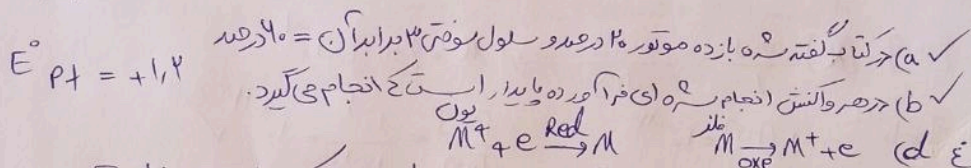 ✓ a) در کتاب گفته شده بازده موتور ۲۰ درصد و سلول سوختی ۳ برابر آن = ۶۰ درصد
E°Pt = +۱,۲
✓ b) در هر واکنش انجام شده‌ای فرآورده پایدار است که انجام می‌گیرد.
d) فلز M →oxe M⁺ + e یون M⁺ + e →Red M